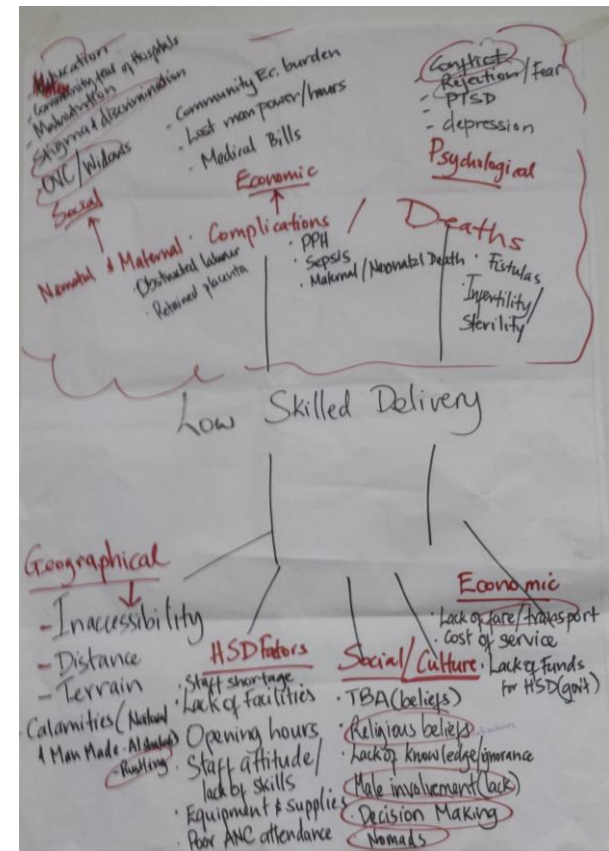 - Community fear of Hospitals
- Malnutrition
- Stigma & discrimination
- OVC/Widows
Social
- Community Ec. burden
- Lost man power/hours
- Medical Bills
Economic
- Conflict
- Rejection/Fear
- PTSD
- depression
Psychological
Neonatal & Maternal · Complications / Deaths
· Obstructed labour
· Retained placenta
· PPH
· Sepsis
· Maternal/Neonatal Death
· Fistulas
· Infertility/
Sterility
Low Skilled Delivery
Geographical
- Inaccessibility
- Distance
- Terrain
- Calamities (Natural
& Man Made
- Rustling
HSD Fators
· Staff shortage
· Lack of facilities
· Opening hours
· Staff attitude/
lack of skills
· Equipment & supplies
· Poor ANC attendance
Social/Culture
· TBA (beliefs)
· Religious beliefs
· Lack of knowledge/ignorance
· Male involvement (lack)
· Decision Making
· Nomads
Economic
· Lack of fare/transport
· Cost of service
· Lack of Funds
for HSD (gov't)